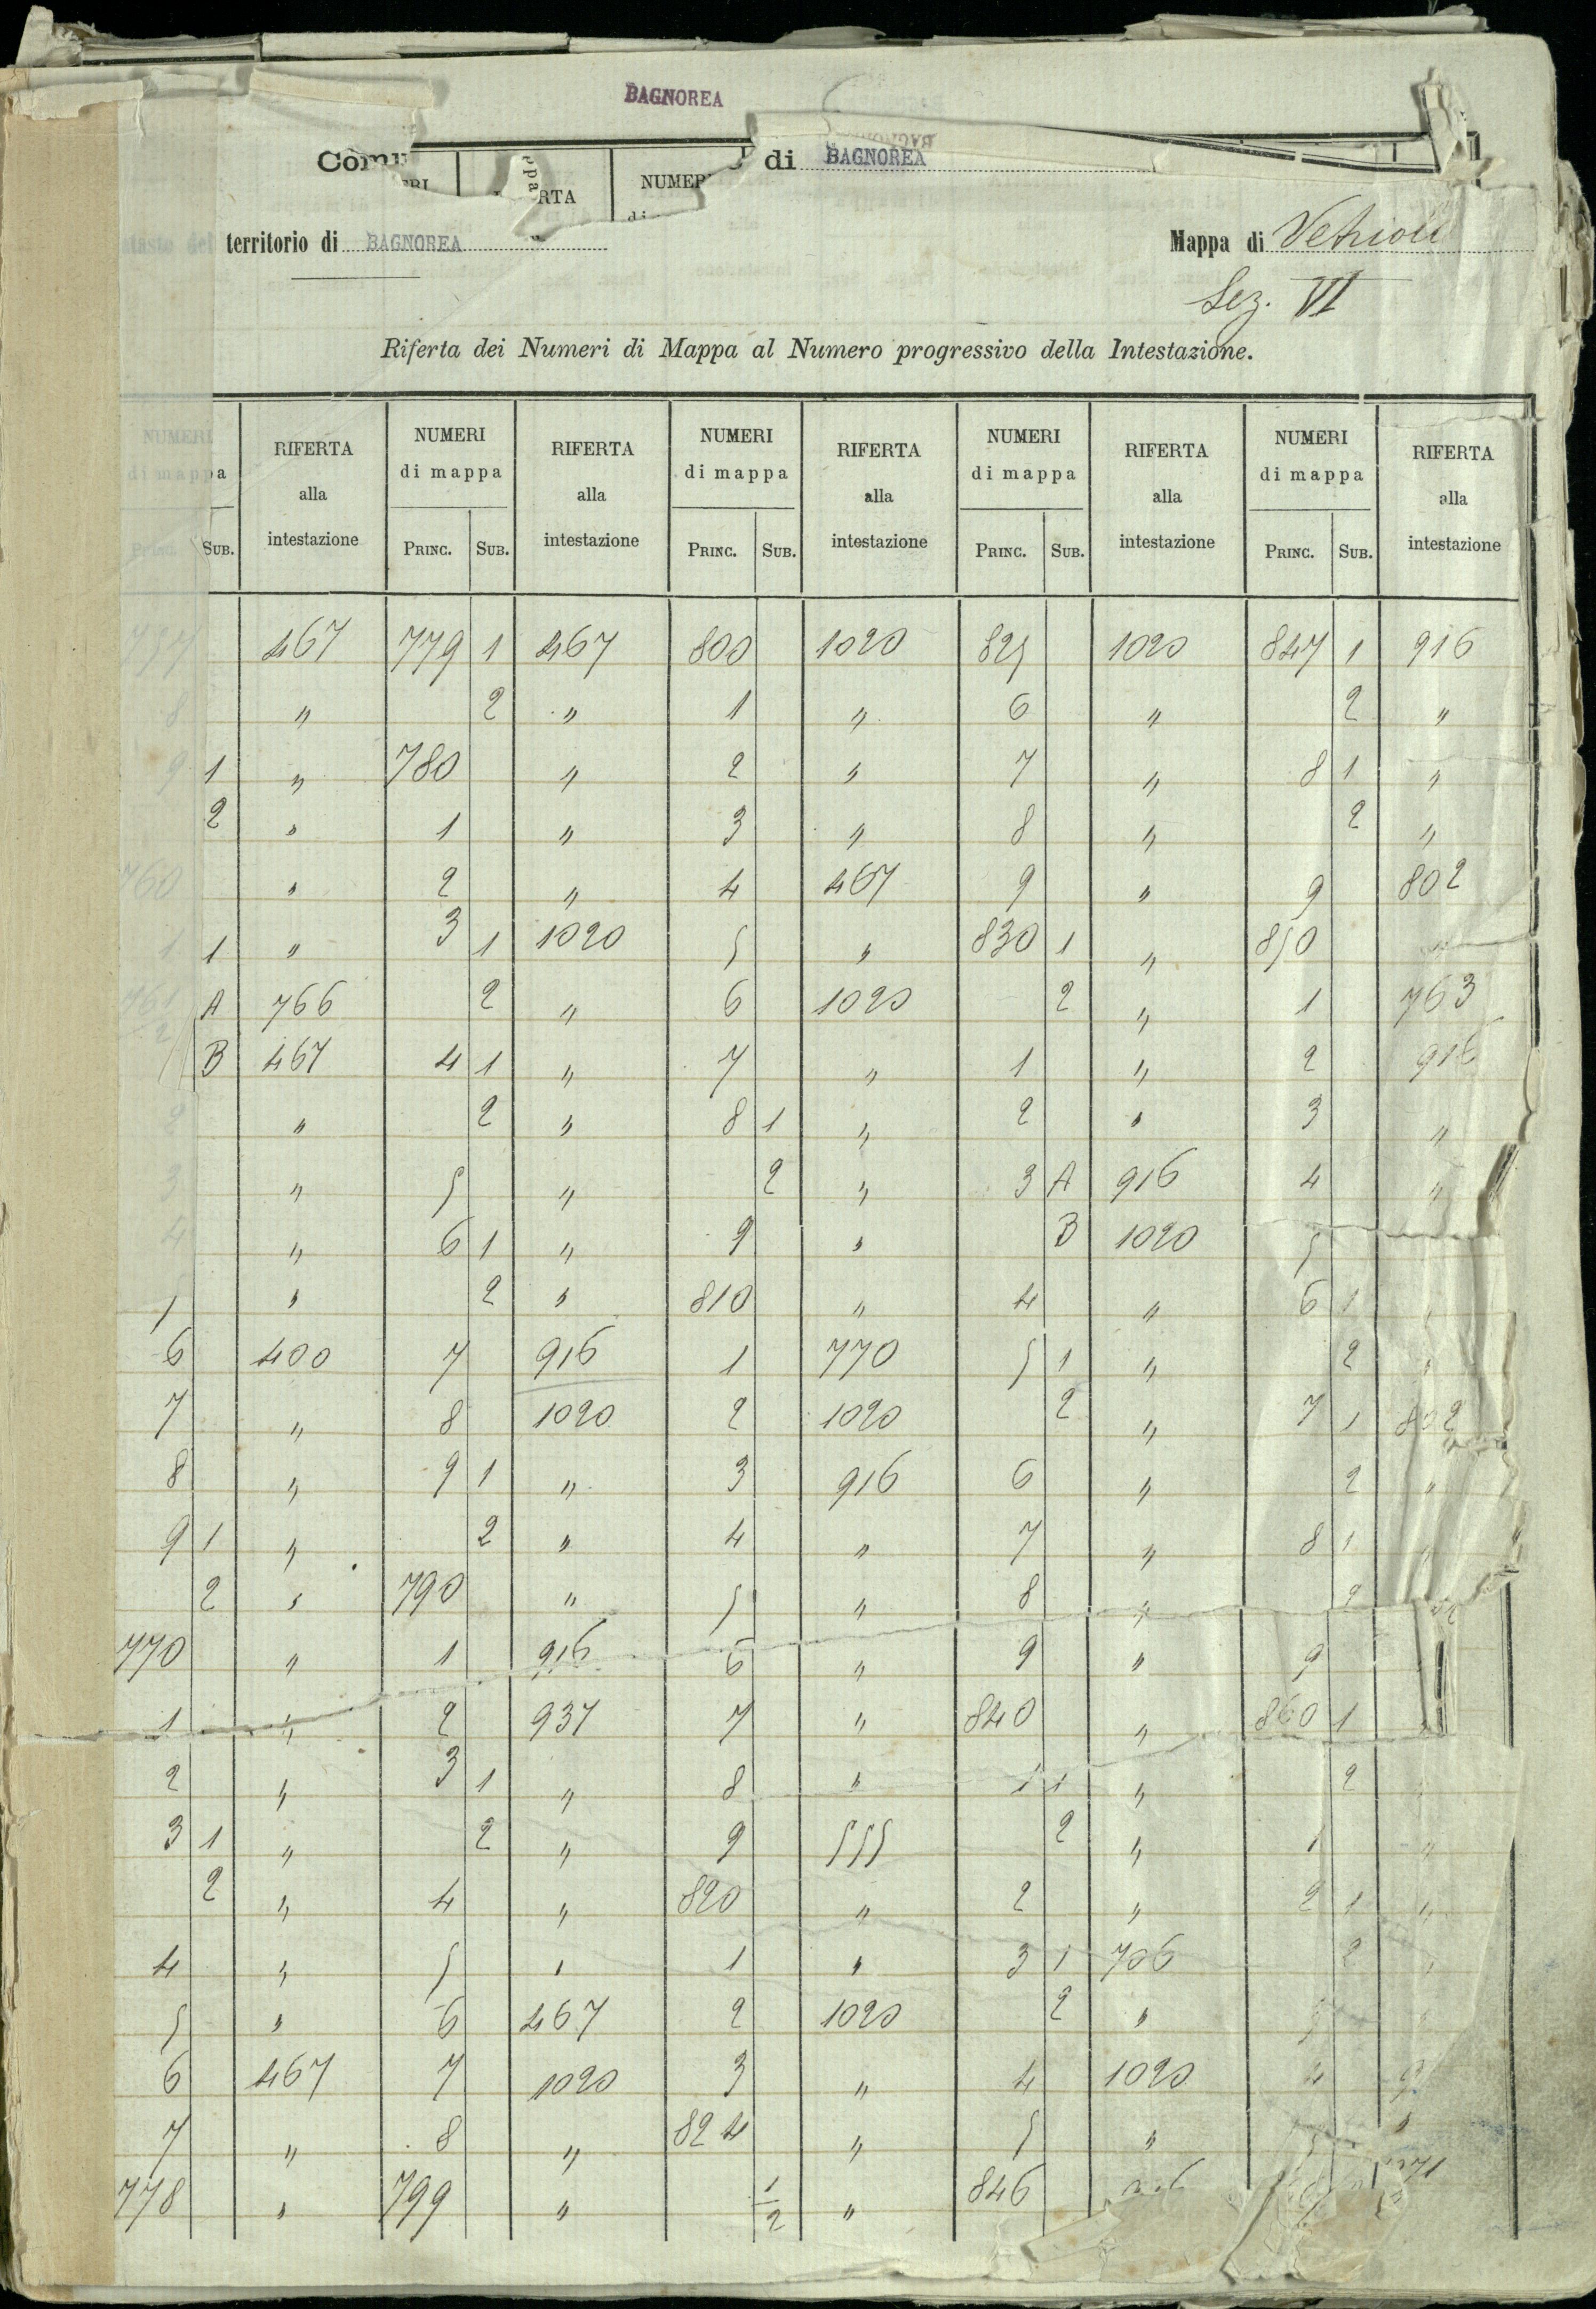 BAGNOREA
di BAGNOREA
NUMER
RTA
territorio di BAGNOREA
Mappa di Vetriolo
Sez. VI
Riferta dei Numeri di Mappa al Numero progressivo della Intestazione.
NUMERI RIFERTA NUMERI RIFERTA NUMERI RIFERTA NUMERI RIFERTA NUMERI RIFERTA
di mappa alla di mappa alla di mappa alla di mappa alla di mappa alla
Princ. SUB. intestazione PRINC. SUB. intestazione PRINC. SUB. intestazione PRINC. SUB. intestazione PRINC. SUB. intestazione
757 467 779 1 467 800 1020 825 1020 847 1 916
8 " 2 " 1 " 6 " 2 "
9 1 " 780 " 2 " 7 " 8 1 "
2 " 1 " 3 " 8 " 2 "
760 " 2 " 4 467 9 " 9 802
1 1 " 3 1 1020 5 " 830 1 " 850 "
761 A 766 2 " 6 1020 2 " 1 763
B 467 4 1 " 7 " 1 " 2 916
2 " 2 " 8 1 " 2 " 3 "
3 " 5 " 2 " 3 A 916 4 "
4 " 6 1 " 9 " B 1020 5
5 " 2 " 810 " 4 " 6 1
6 400 7 916 1 770 5 1 " 2 "
7 " 8 1020 2 1020 2 " 7 1 802
8 " 9 1 " 3 916 6 " 2 "
9 1 " 2 " 4 " 7 " 8 1 "
2 " 790 " 5 " 8 " 2
770 " 1 916 6 " 9 " 9
1 " 2 937 7 " 840 " 860 1
2 " 3 1 " 8 " 1 1 " 2
3 1 " 2 " 9 555 2 " 1 "
2 " 4 " 820 " 2 " 2 1 "
4 " 5 " 1 " 3 1 706 2
5 " 6 467 2 1020 2 "
6 467 7 1020 3 " 4 1020 4
7 " 8 " 824 " 5 " 5 "
778 " 799 " 1/2 " 846